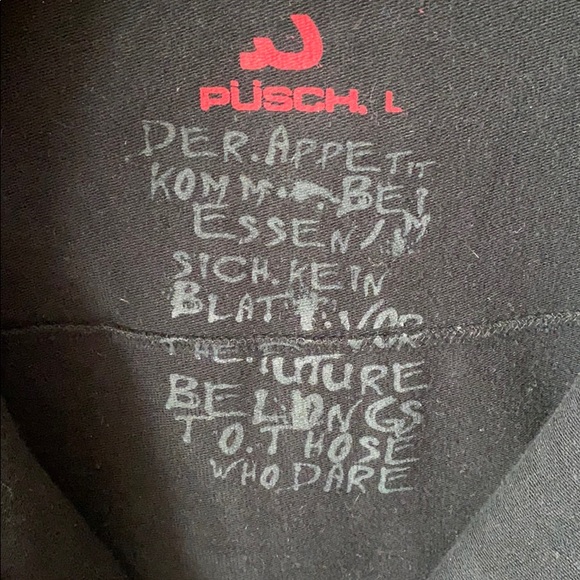 PÜSCH. L
DER.APPETIT
KOMM BEI
ESSEN/M
SICH.KEIN
BLATT.VOR
THE.FUTURE
BELONGS
TO.THOSE
WHO DARE